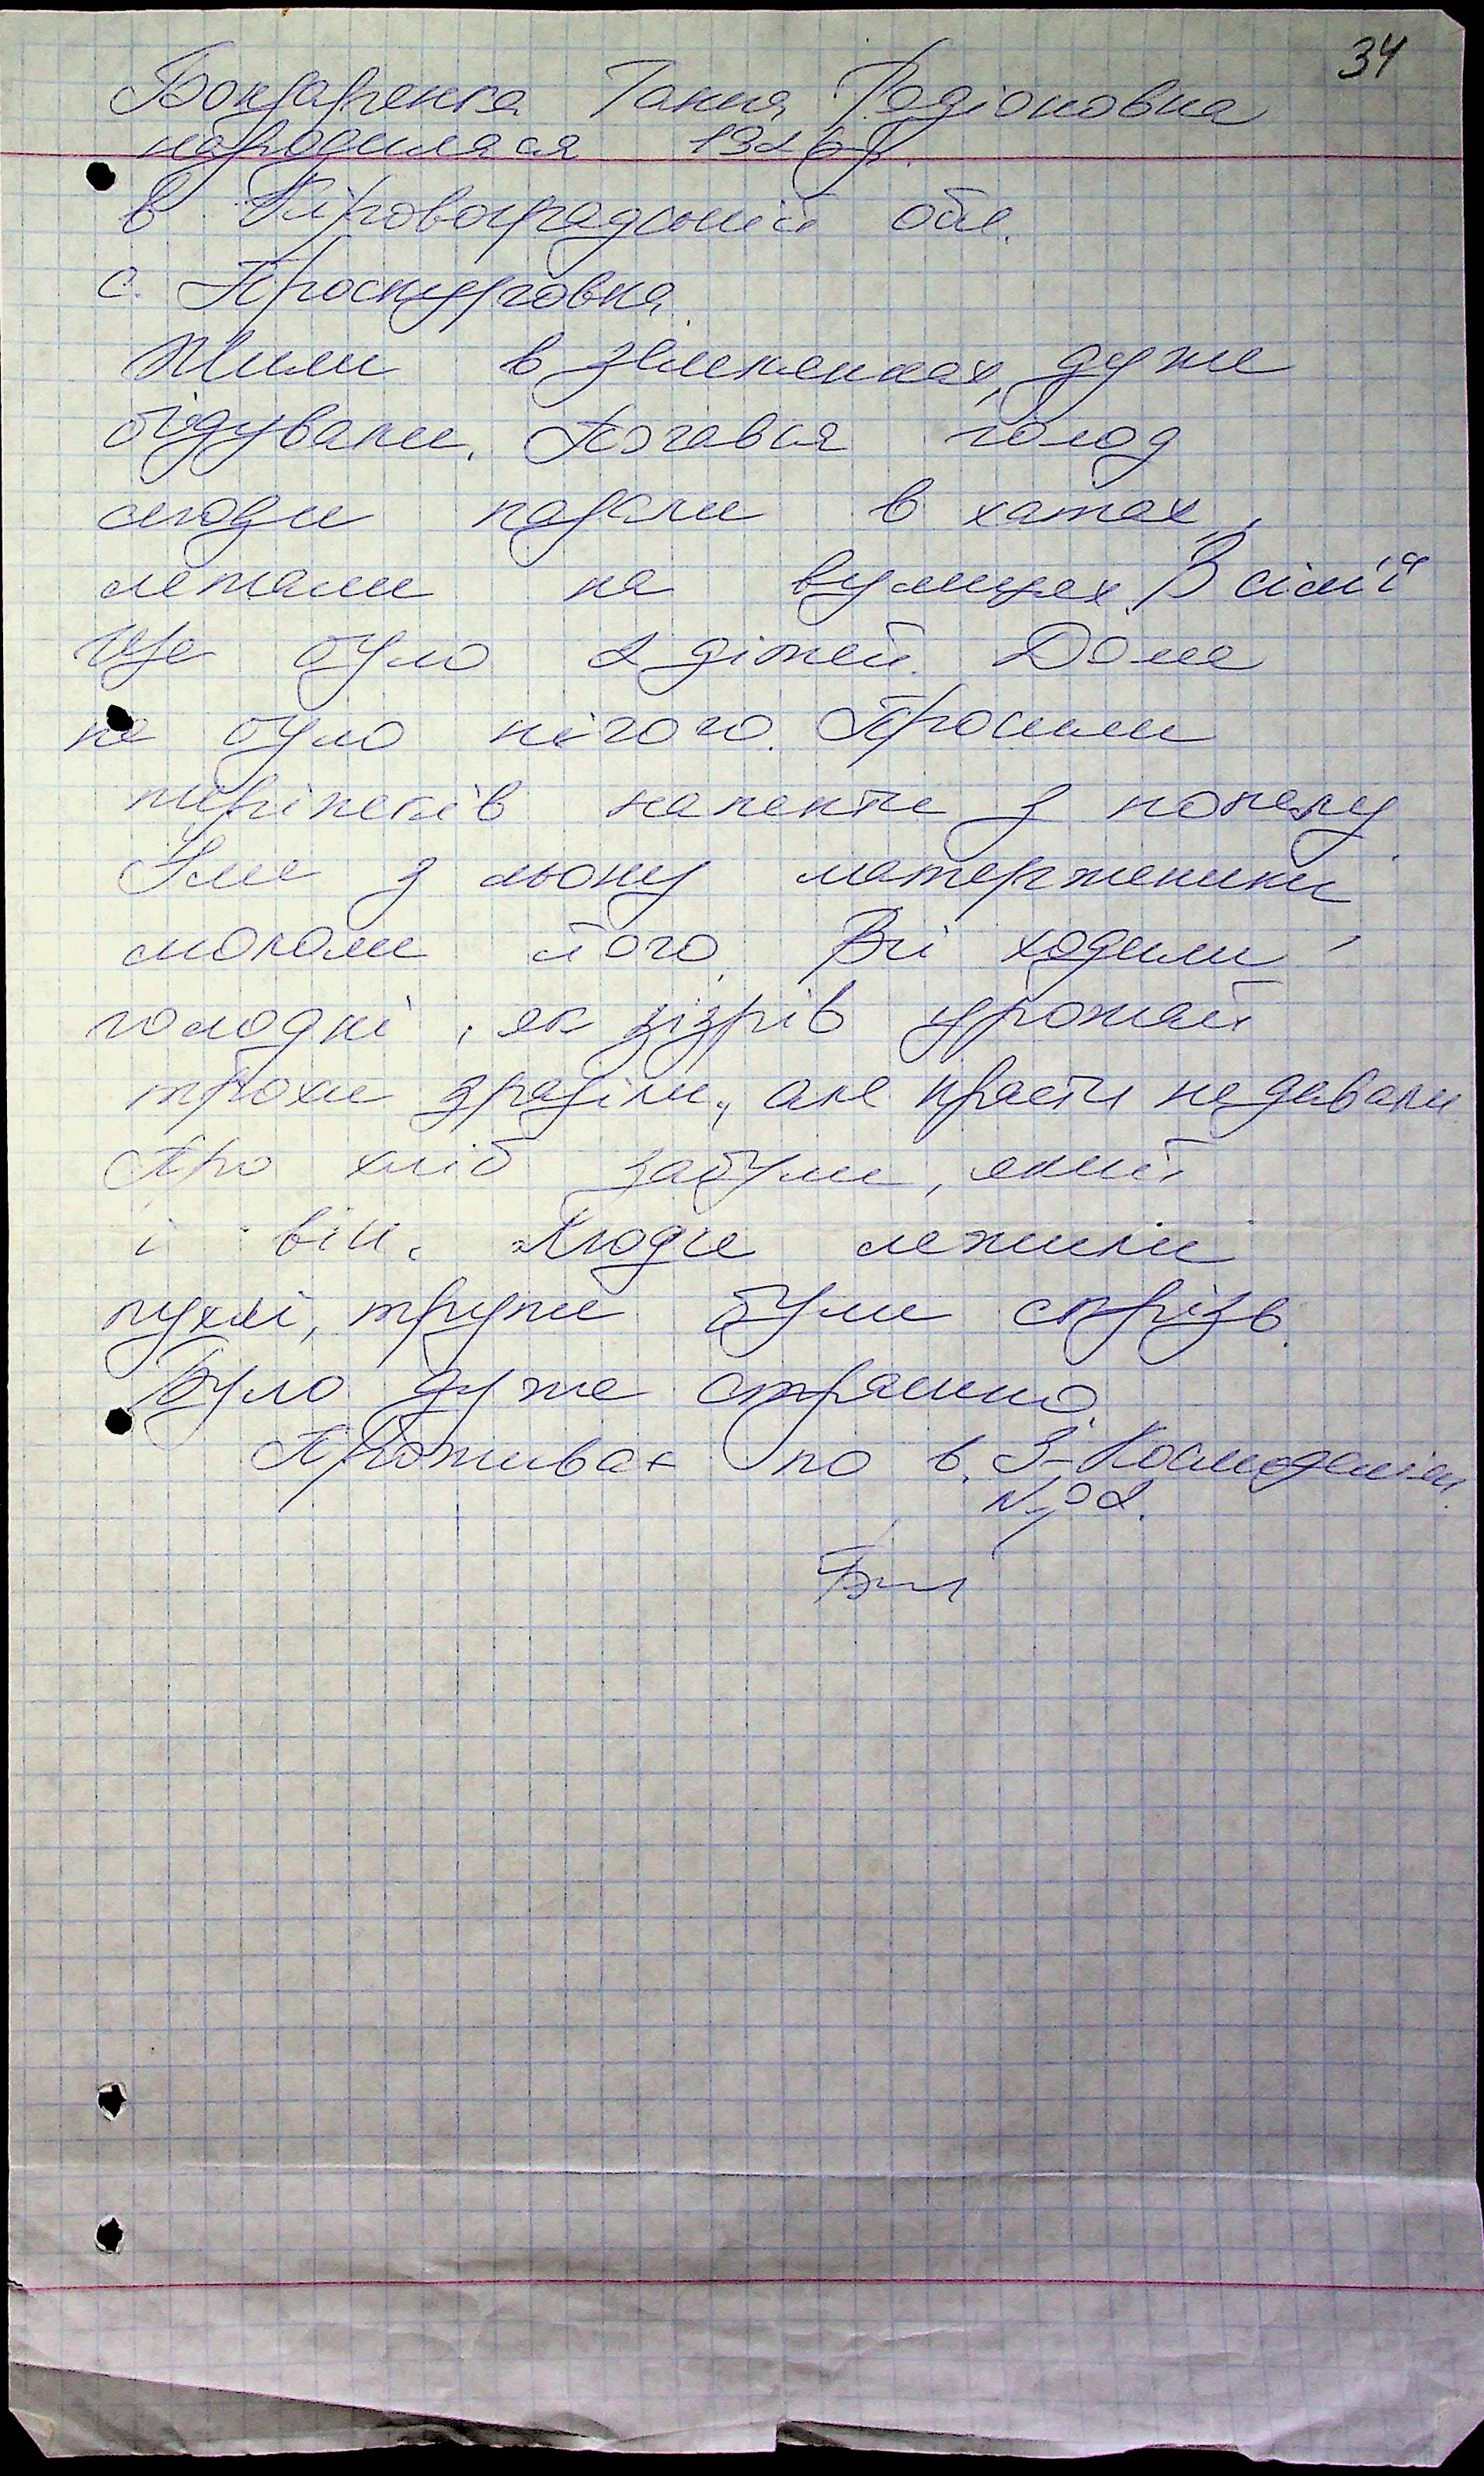 34
Бондаренка Ганна Радіоновна
народилася 1926 р.
в Кіровоградській обл.
с. Проскуровка.
Жили в землянках, дуже
бідували. Почався голод
люди падали в хатах,
лежали на вулицях. В сім'ї
ще було 2 дітей. Дома
не було нічого. Просили
пиріжків напекти з попелу
Їли з льону матерженики,
мололи його. Всі ходили
голодні, як зізрів урожай
трохи зраділи, але красти не давали
Про хліб забули, який
і він. Люди лежали
пухлі, трупи були скрізь.
Було дуже страшно.
Проживає по в. З-Космодем'ян.
№ 2.